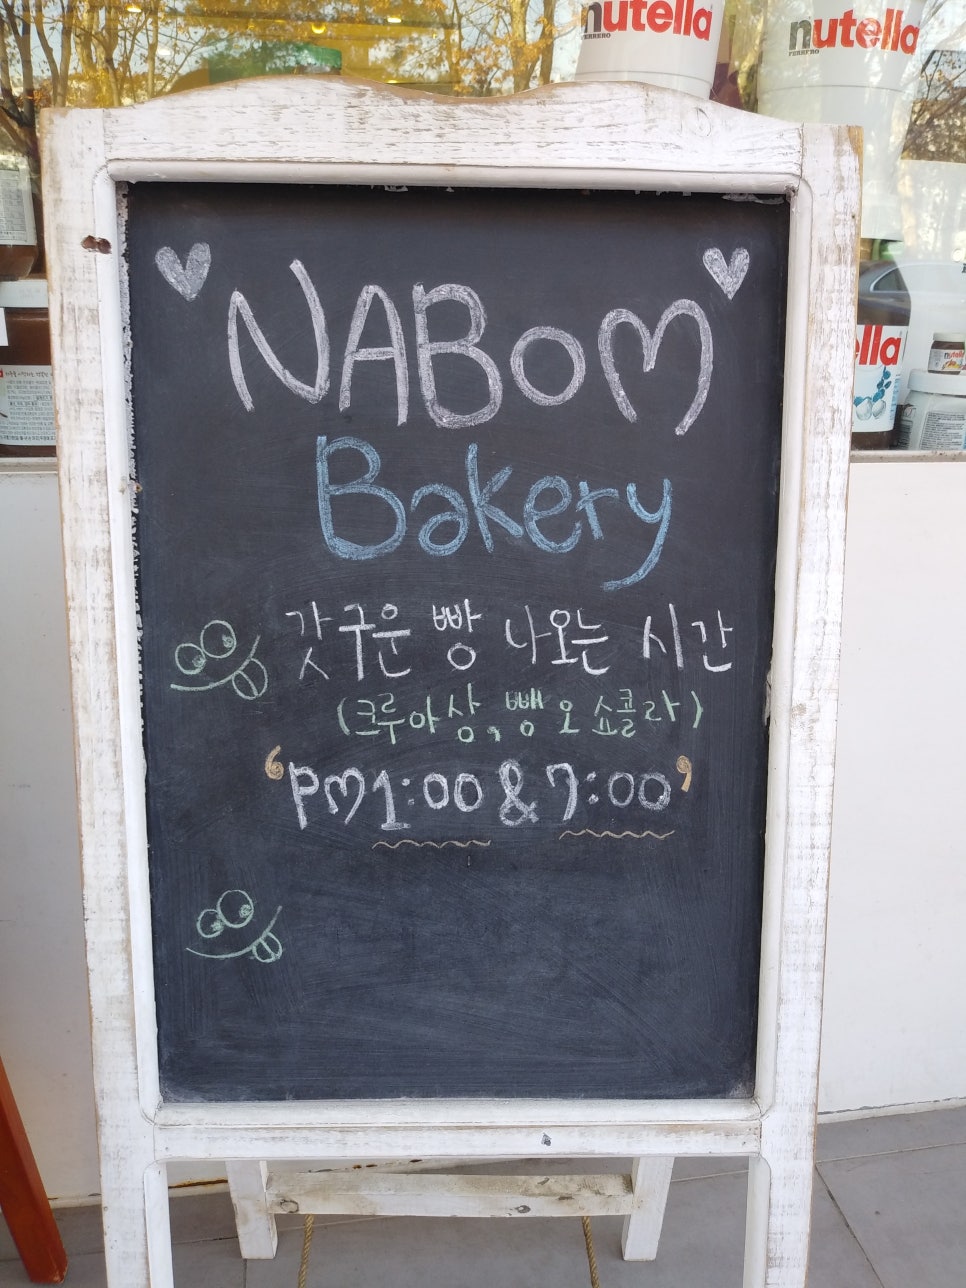 nutella
FERRERO
nutella
FERRERO
NABOM
Bakery
갓구운 빵 나오는 시간
(크루아상, 뺑 오 쇼콜라)
'PM1:00 & 7:00'
ella
nutella